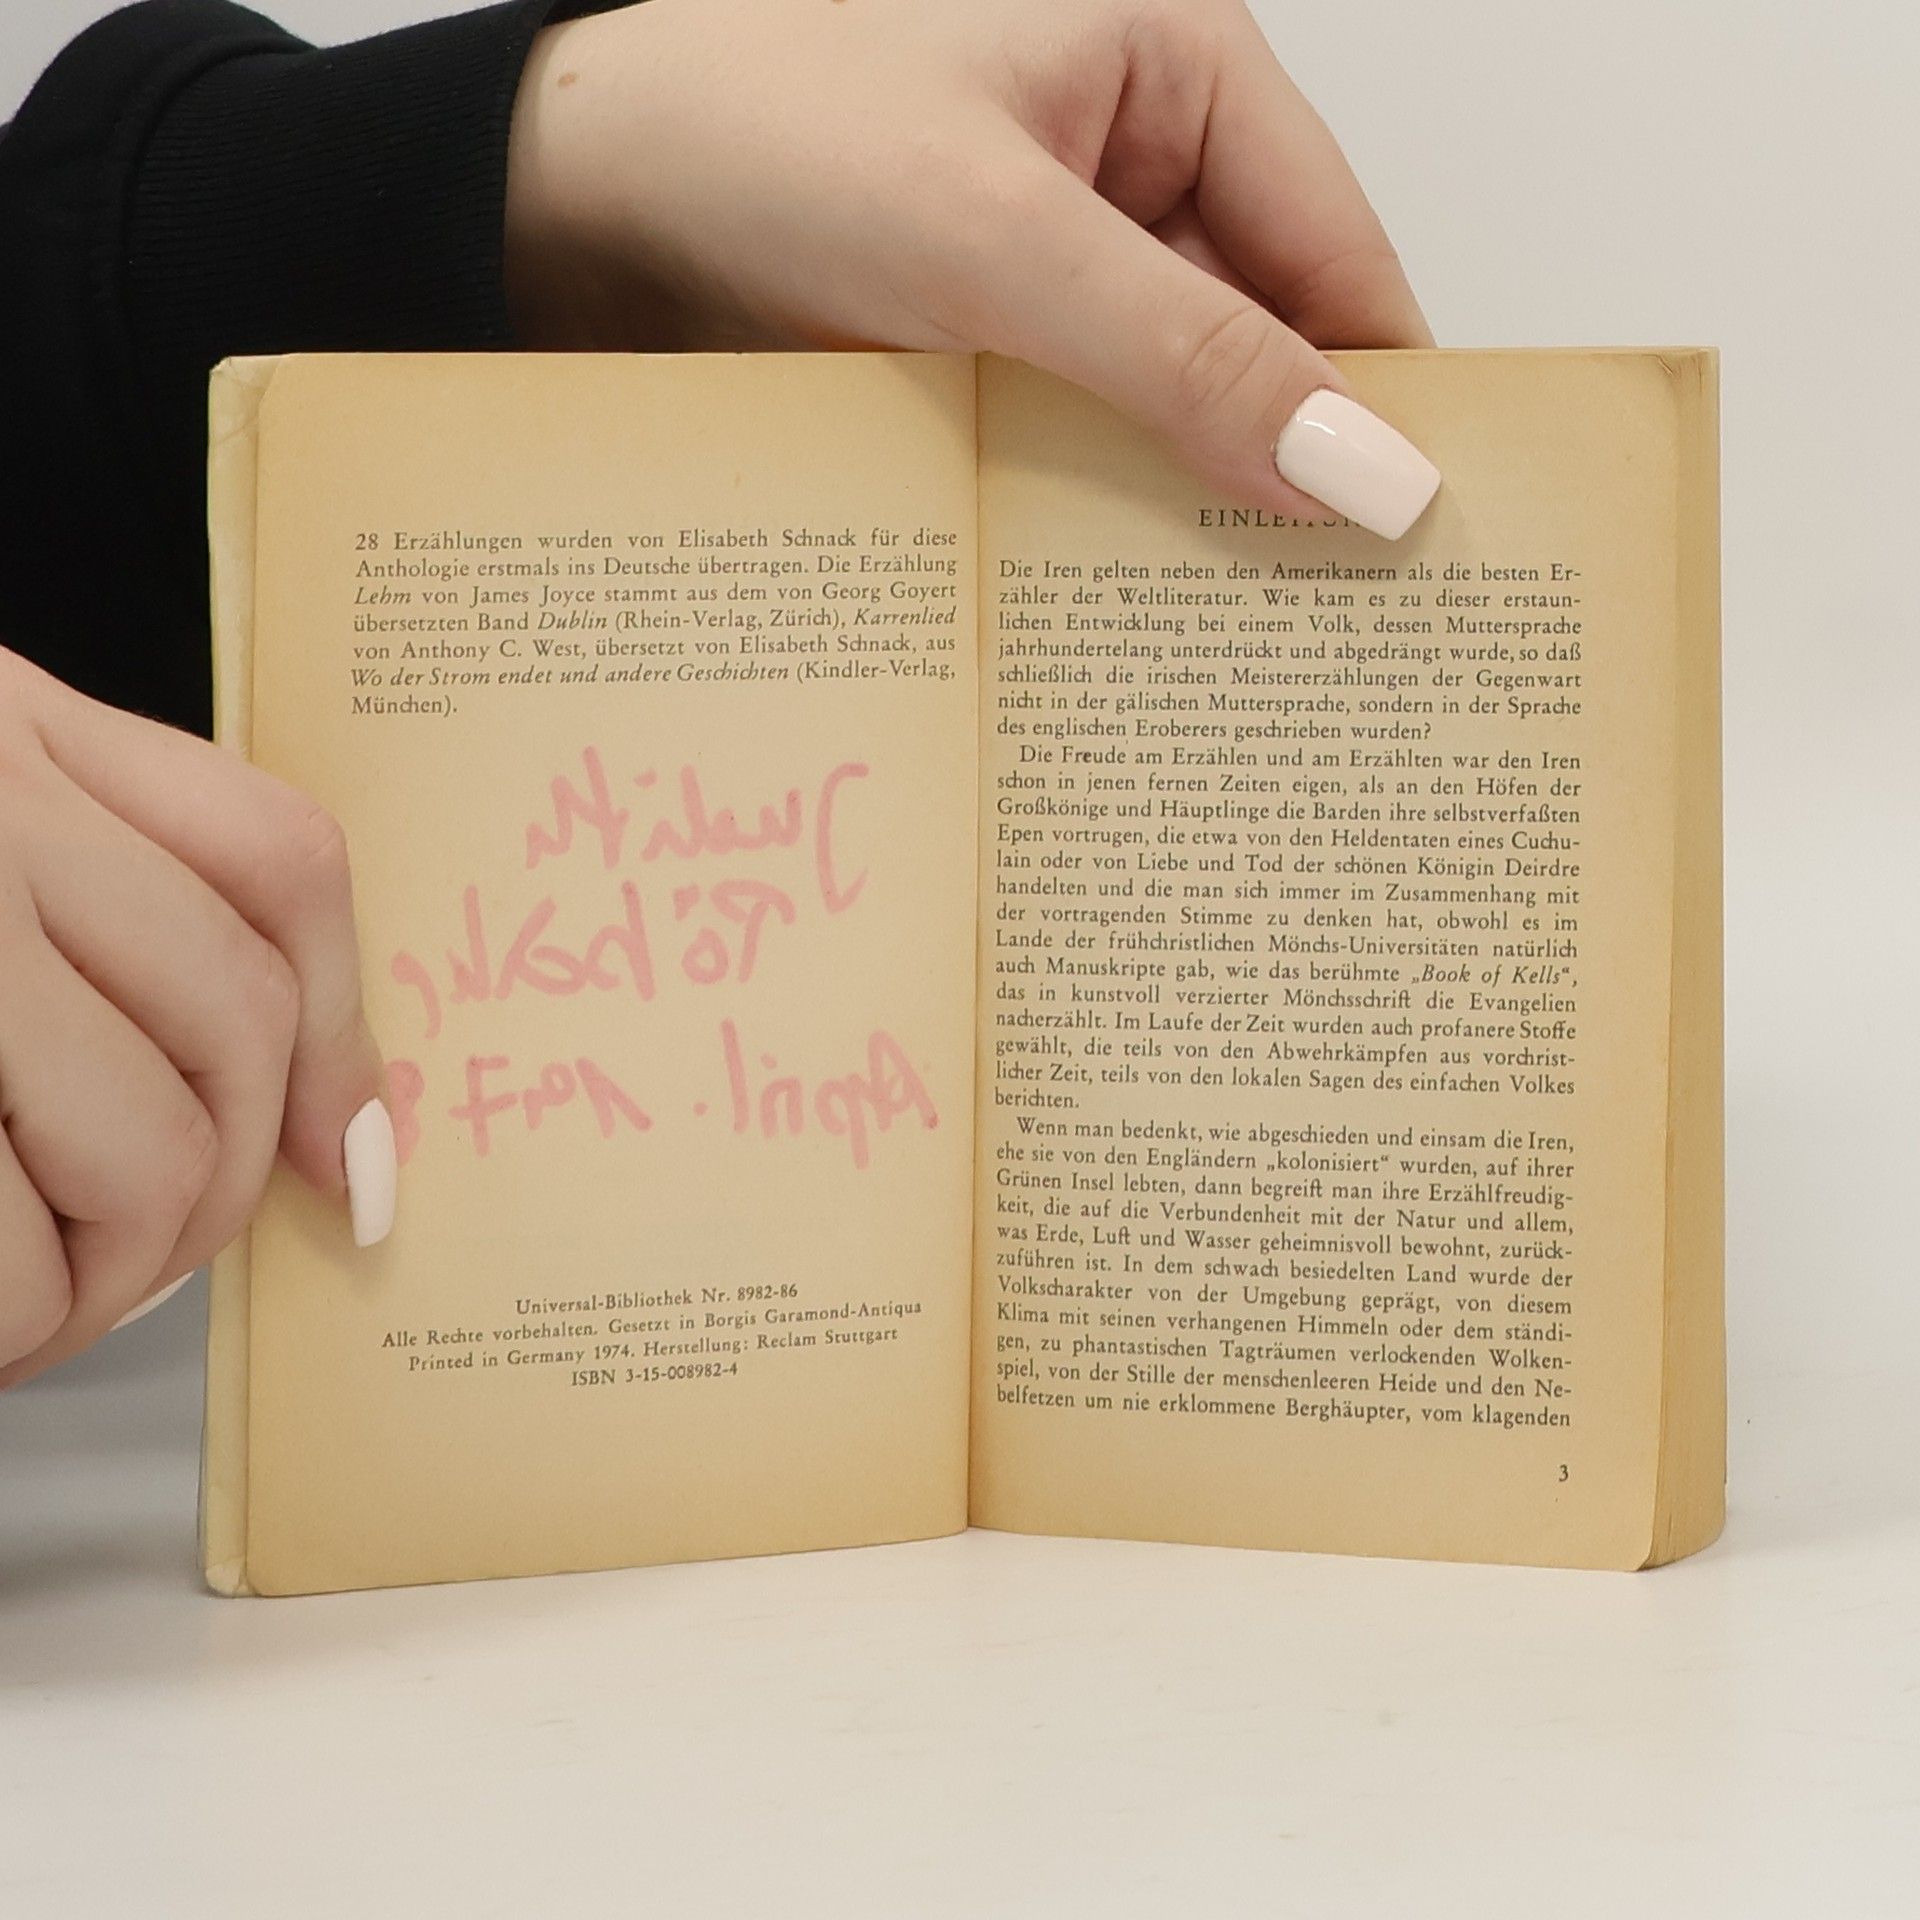 28 Erzählungen wurden von Elisabeth Schnack für diese
Anthologie erstmals ins Deutsche übertragen. Die Erzählung
Lehm von James Joyce stammt aus dem von Georg Goyert
übersetzten Band Dublin (Rhein-Verlag, Zürich), Karrenlied
von Anthony C. West, übersetzt von Elisabeth Schnack, aus
Wo der Strom endet und andere Geschichten (Kindler-Verlag,
München).
Judith
April. 1978
Universal-Bibliothek Nr. 8982-86
Alle Rechte vorbehalten. Gesetzt in Borgis Garamond-Antiqua
Printed in Germany 1974. Herstellung: Reclam Stuttgart
ISBN 3-15-008982-4
Die Iren gelten neben den Amerikanern als die besten Er-
zähler der Weltliteratur. Wie kam es zu dieser erstaun-
lichen Entwicklung bei einem Volk, dessen Muttersprache
jahrhundertelang unterdrückt und abgedrängt wurde, so daß
schließlich die irischen Meistererzählungen der Gegenwart
nicht in der gälischen Muttersprache, sondern in der Sprache
des englischen Eroberers geschrieben wurden?
Die Freude am Erzählen und am Erzählten war den Iren
schon in jenen fernen Zeiten eigen, als an den Höfen der
Großkönige und Häuptlinge die Barden ihre selbstverfaßten
Epen vortrugen, die etwa von den Heldentaten eines Cuchu-
lain oder von Liebe und Tod der schönen Königin Deirdre
handelten und die man sich immer im Zusammenhang mit
der vortragenden Stimme zu denken hat, obwohl es im
Lande der frühchristlichen Mönchs-Universitäten natürlich
auch Manuskripte gab, wie das berühmte „Book of Kells“,
das in kunstvoll verzierter Mönchsschrift die Evangelien
nacherzählt. Im Laufe der Zeit wurden auch profanere Stoffe
gewählt, die teils von den Abwehrkämpfen aus vorchrist-
licher Zeit, teils von den lokalen Sagen des einfachen Volkes
berichten.
Wenn man bedenkt, wie abgeschieden und einsam die Iren,
ehe sie von den Engländern „kolonisiert“ wurden, auf ihrer
Grünen Insel lebten, dann begreift man ihre Erzählfreudig-
keit, die auf die Verbundenheit mit der Natur und allem,
was Erde, Luft und Wasser geheimnisvoll bewohnt, zurück-
zuführen ist. In dem schwach besiedelten Land wurde der
Volkscharakter von der Umgebung geprägt, von diesem
Klima mit seinen verhangenen Himmeln oder dem ständi-
gen, zu phantastischen Tagträumen verlockenden Wolken-
spiel, von der Stille der menschenleeren Heide und den Ne-
belfetzen um nie erklommene Berghäupter, vom klagenden
3